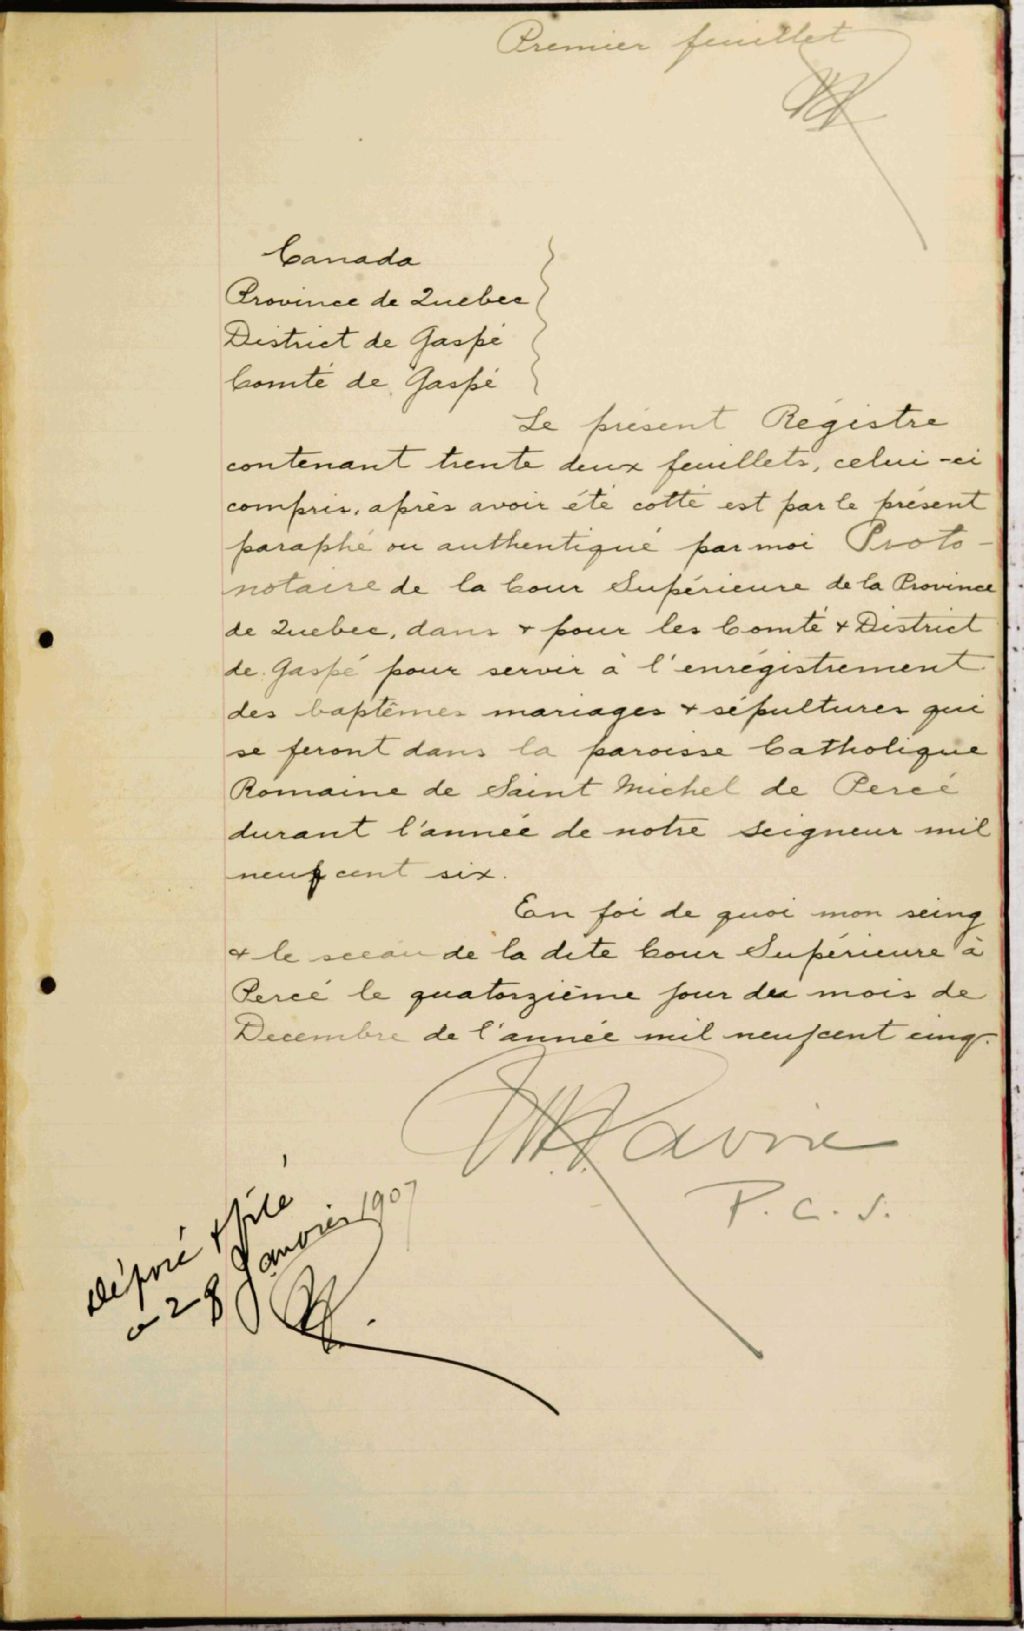 Premier feuillet
Canada
Province de Quebec
District de Gaspé
Comté de Gaspé
Le présent Régistre
contenant trente deux feuillets, celui-ci
compris, après avoir été cotté est par le présent
paraphé ou authentiqué par moi Proto-
notaire de la Cour Supérieure de la Province
de Quebec, dans & pour les Comté & District
de Gaspé pour servir à l'enrégistrement
des baptêmes mariages & sépultures qui
se feront dans la paroisse Catholique
Romaine de Saint Michel de Percé
durant l'année de notre Seigneur mil
neuf cent six.
En foi de quoi mon seing
& le sceau de la dite Cour Supérieure à
Percé le quatorzième jour du mois de
Decembre de l'année mil neufcent cinq.
P.C.S.
Déposé & filé
ce 28 Janvier 1907